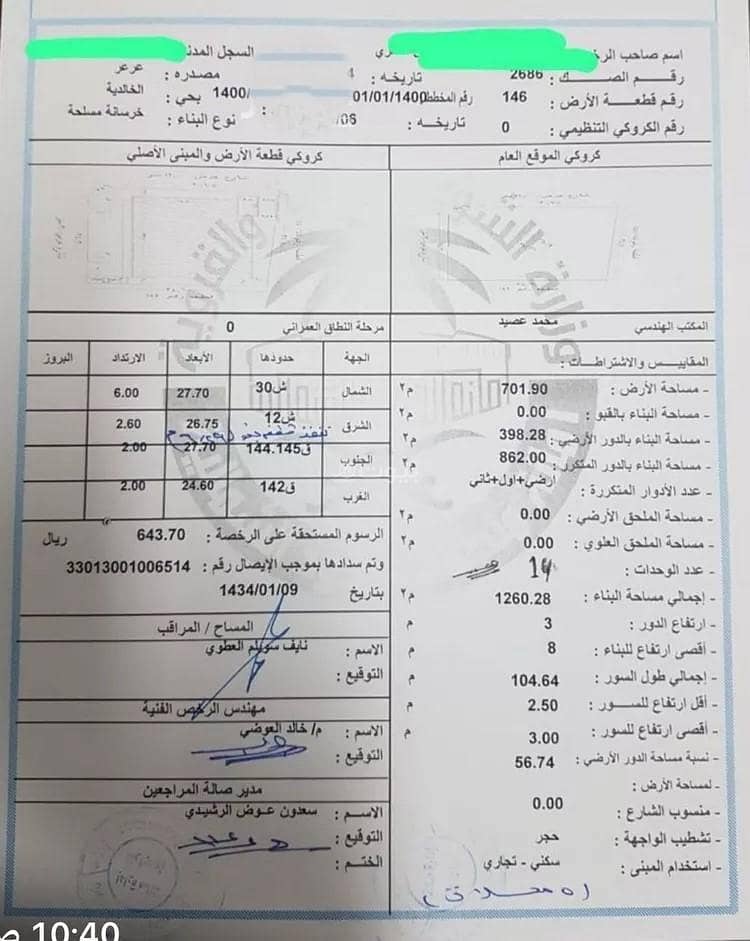 اسم صاحب الر
السجل المدن
رقم الصك : 2686
تاريخه : 4
مصدره : عرعر
رقم قطعة الأرض : 146
رقم المخطط 01/01/1400
1400/
بحي : الخالدية
رقم الكروكي التنظيمي : 0
تاريخه : /06
نوع البناء : خرسانة مسلحة
كروكي الموقع العام
كروكي قطعة الأرض والمبنى الأصلي
المكتب الهندسي محمد عصيد
المقاييس والاشتراطات :
- مساحة الأرض : 701.90 م٢
- مساحة البناء بالقبو : 0.00 م٢
- مساحة البناء بالدور الأرضي : 398.28 م٢
- مساحة البناء بالدور المتكرر : 862.00 م٢
- عدد الأدوار المتكررة : ارضي+اول+ثاني
- مساحة الملحق الأرضي : 0.00 م٢
- مساحة الملحق العلوي : 0.00 م٢
- عدد الوحدات : 14
- إجمالي مساحة البناء : 1260.28 م٢
- ارتفاع الدور : 3 م
- أقصى ارتفاع للبناء : 8 م
- إجمالي طول السور : 104.64 م
- أقل ارتفاع للسور : 2.50 م
- أقصى ارتفاع للسور : 3.00 م
- نسبة مساحة الدور الأرضي : 56.74
لمساحة الأرض :
- منسوب الشارع : 0.00
- تشطيب الواجهة : حجر
- استخدام المبنى : سكني - تجاري
مرحلة النطاق العمراني 0
الجهة حدودها الأبعاد الارتداد البروز
الشمال ش30 27.70 6.00
الشرق ش12 26.75 2.60
الجنوب ق144.145 27.70 2.00
الغرب ق142 24.60 2.00
الرسوم المستحقة على الرخصة : 643.70 ريال
وتم سدادها بموجب الإيصال رقم : 33013001006514
بتاريخ 1434/01/09
المساح / المراقب
الاسم : نايف سويلم العطوي
التوقيع :
مهندس الرخص الفنية
الاسم : م/ خالد العوضي
التوقيع :
مدير صالة المراجعين
الاسم : سعدون عوض الرشيدي
التوقيع :
الختم :
10:40